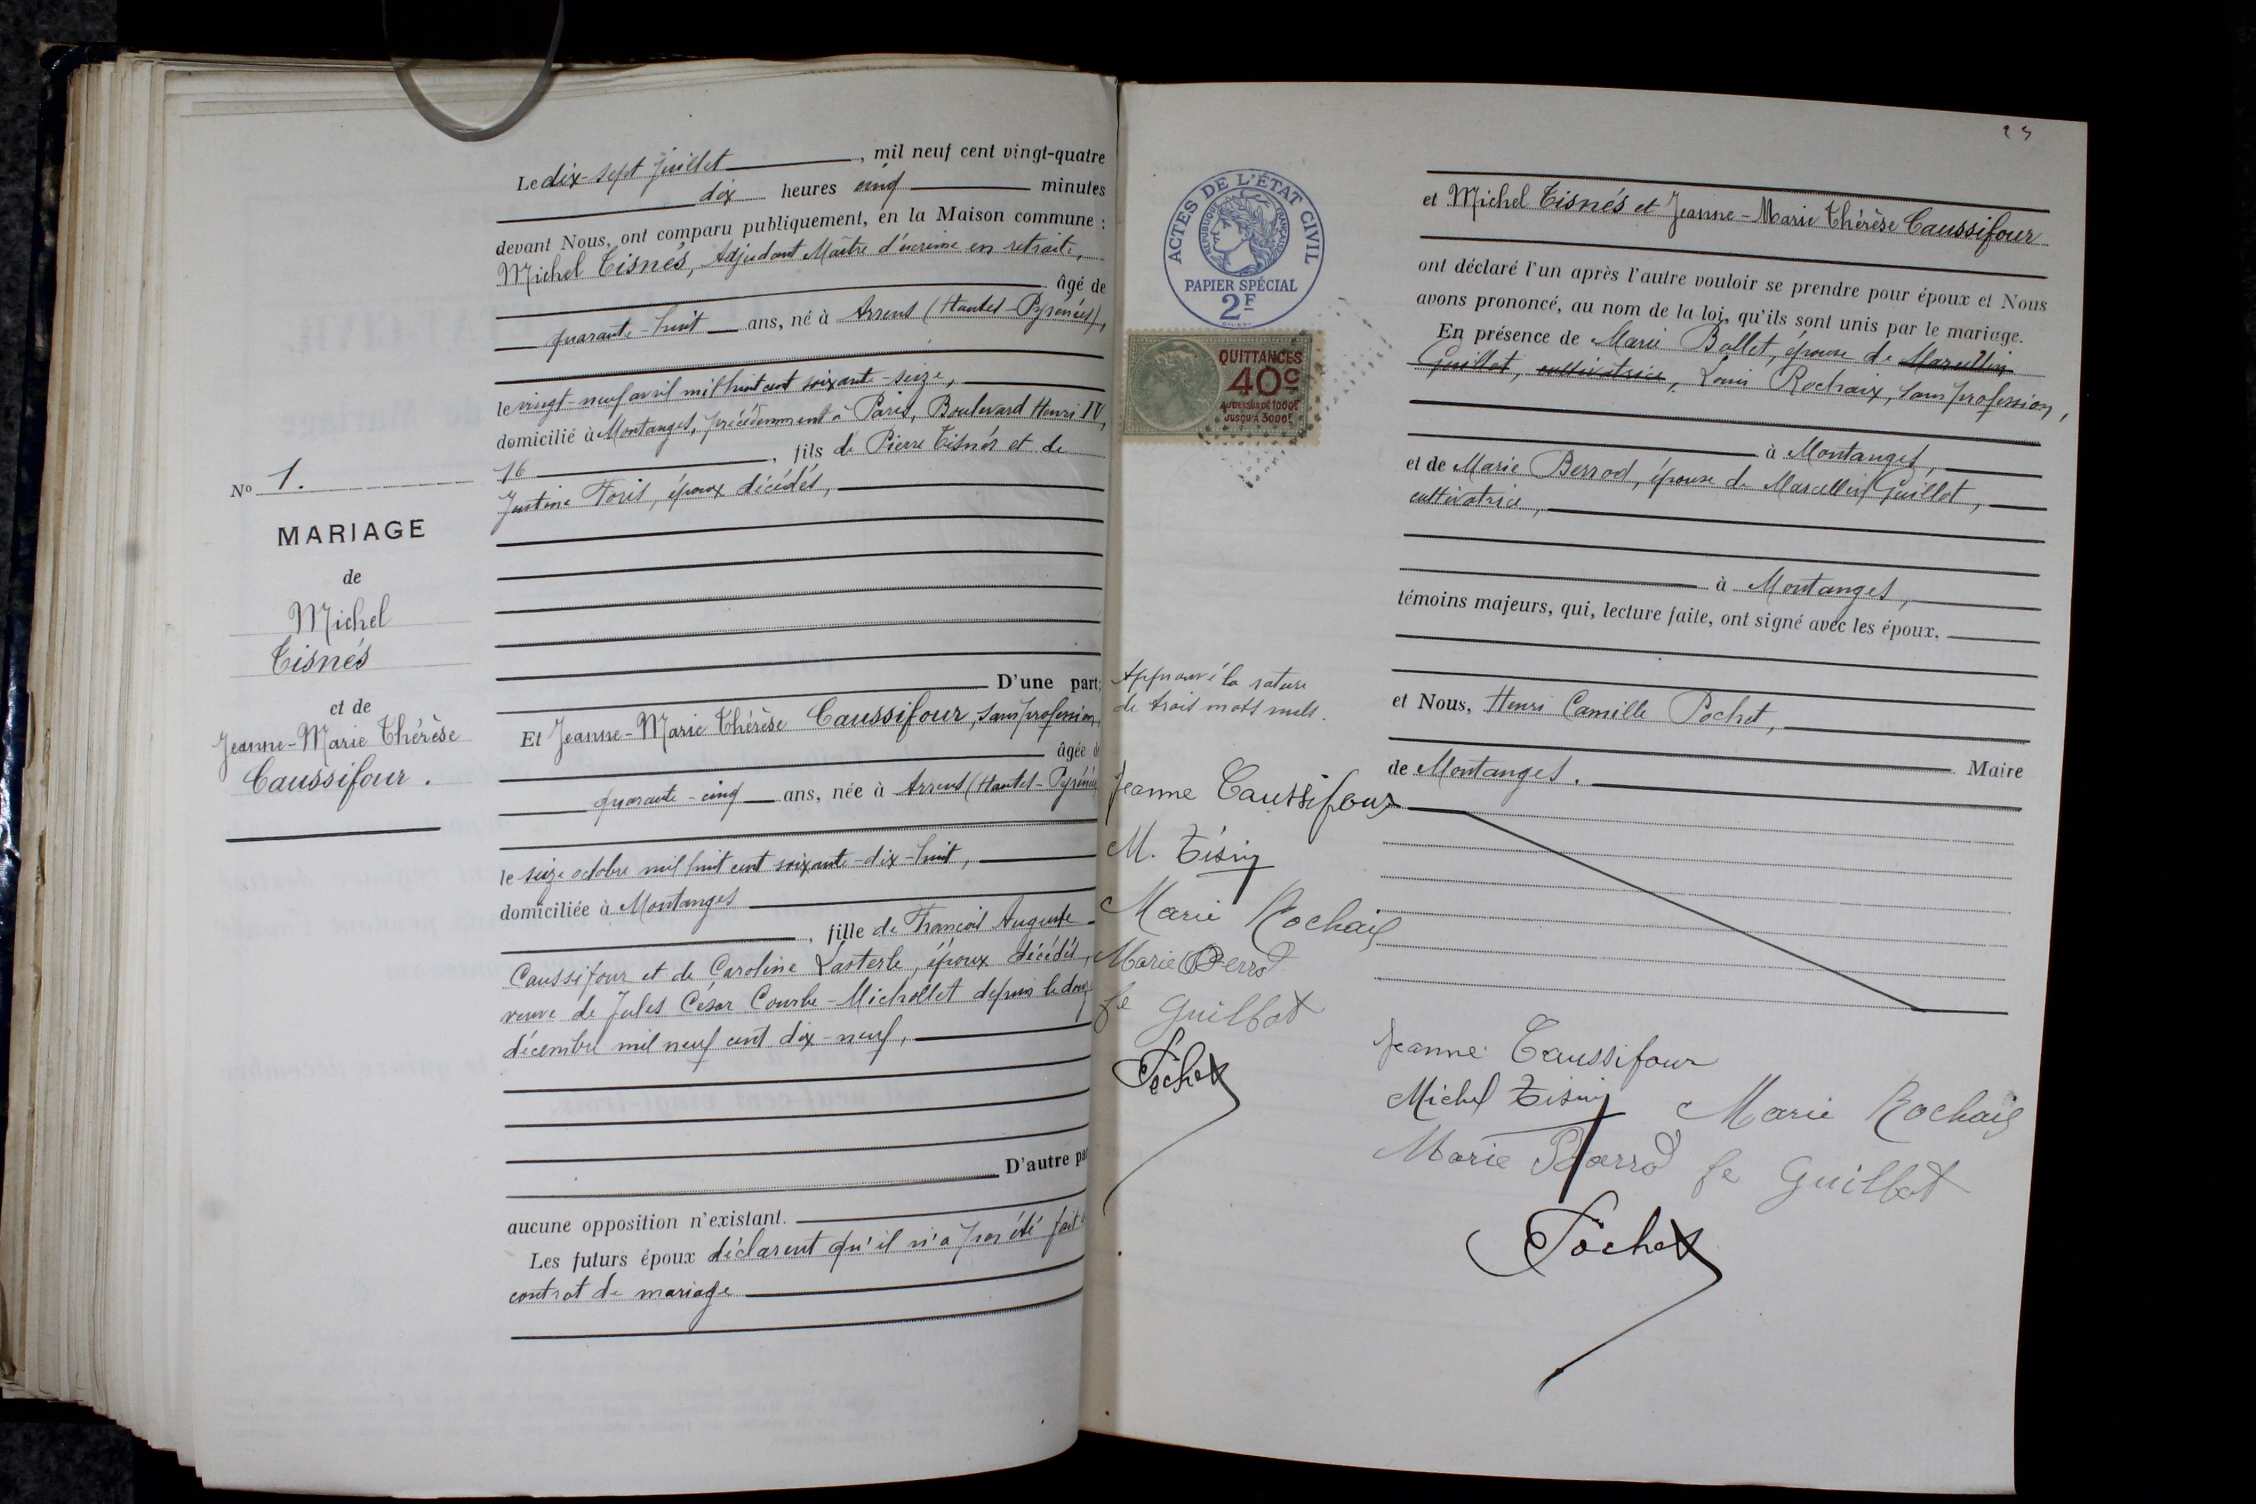 Le dix-sept juillet, mil neuf cent vingt-quatre
dix heures cinq minutes
devant Nous, ont comparu publiquement, en la Maison commune :
Michel Tisnés, Adjudant Maître d'escrime en retraite,
âgé de
quarante-huit ans, né à Arrens (Hautes-Pyrénées),
le vingt-neuf avril mil huit cent soixante-seize,
domicilié à Montanges, précédemment à Paris, Boulevard Henri IV,
16, fils de Pierre Tisnés et de
Justine Foris, époux décédés,
D'une part;
Et Jeanne-Marie Thérèse Caussifour, sans profession,
âgée de
quarante-cinq ans, née à Arrens (Hautes-Pyrénées
le seize octobre mil huit cent soixante-dix-huit,
domiciliée à Montanges
, fille de François Auguste
Caussifour et de Caroline Lasterle, époux décédés,
veuve de Jules César Courbe-Michollet depuis le douze
décembre mil neuf cent dix-neuf,
D'autre par
aucune opposition n'existant.
Les futurs époux déclarent qu'il n'a pas été fait de
contrat de mariage
No 1.
MARIAGE
de
Michel
Tisnés
et de
Jeanne-Marie Thérèse
Caussifour.
23
ACTES DE L'ÉTAT CIVIL
RÉPUBLIQUE FRANÇAISE
PAPIER SPÉCIAL
2F
QUITTANCES
40c
AU DESSUS DE 1000F
JUSQU'À 3000F
et Michel Tisnés et Jeanne-Marie Thérèse Caussifour
ont déclaré l'un après l'autre vouloir se prendre pour époux et Nous
avons prononcé, au nom de la loi, qu'ils sont unis par le mariage.
En présence de Marie Ballet, épouse de Marcellin
Guillot, cultivatrice, Louis Rochaix, sans profession,
à Montanges,
et de Marie Berrod, épouse de Marcellin Guillot,
cultivatrice,
à Montanges,
témoins majeurs, qui, lecture faite, ont signé avec les époux.
et Nous, Henri Camille Pochet,
Maire
de Montanges.
Approuvé la rature
de trois mots nuls.
Jeanne Caussifour
M. Tisné
Marie Rochaix
Marie Berrod
fe Guillot
Pochet
Jeanne Caussifour
Michel Tisné Marie Rochaix
Marie Berrod fe Guillot
Pochet